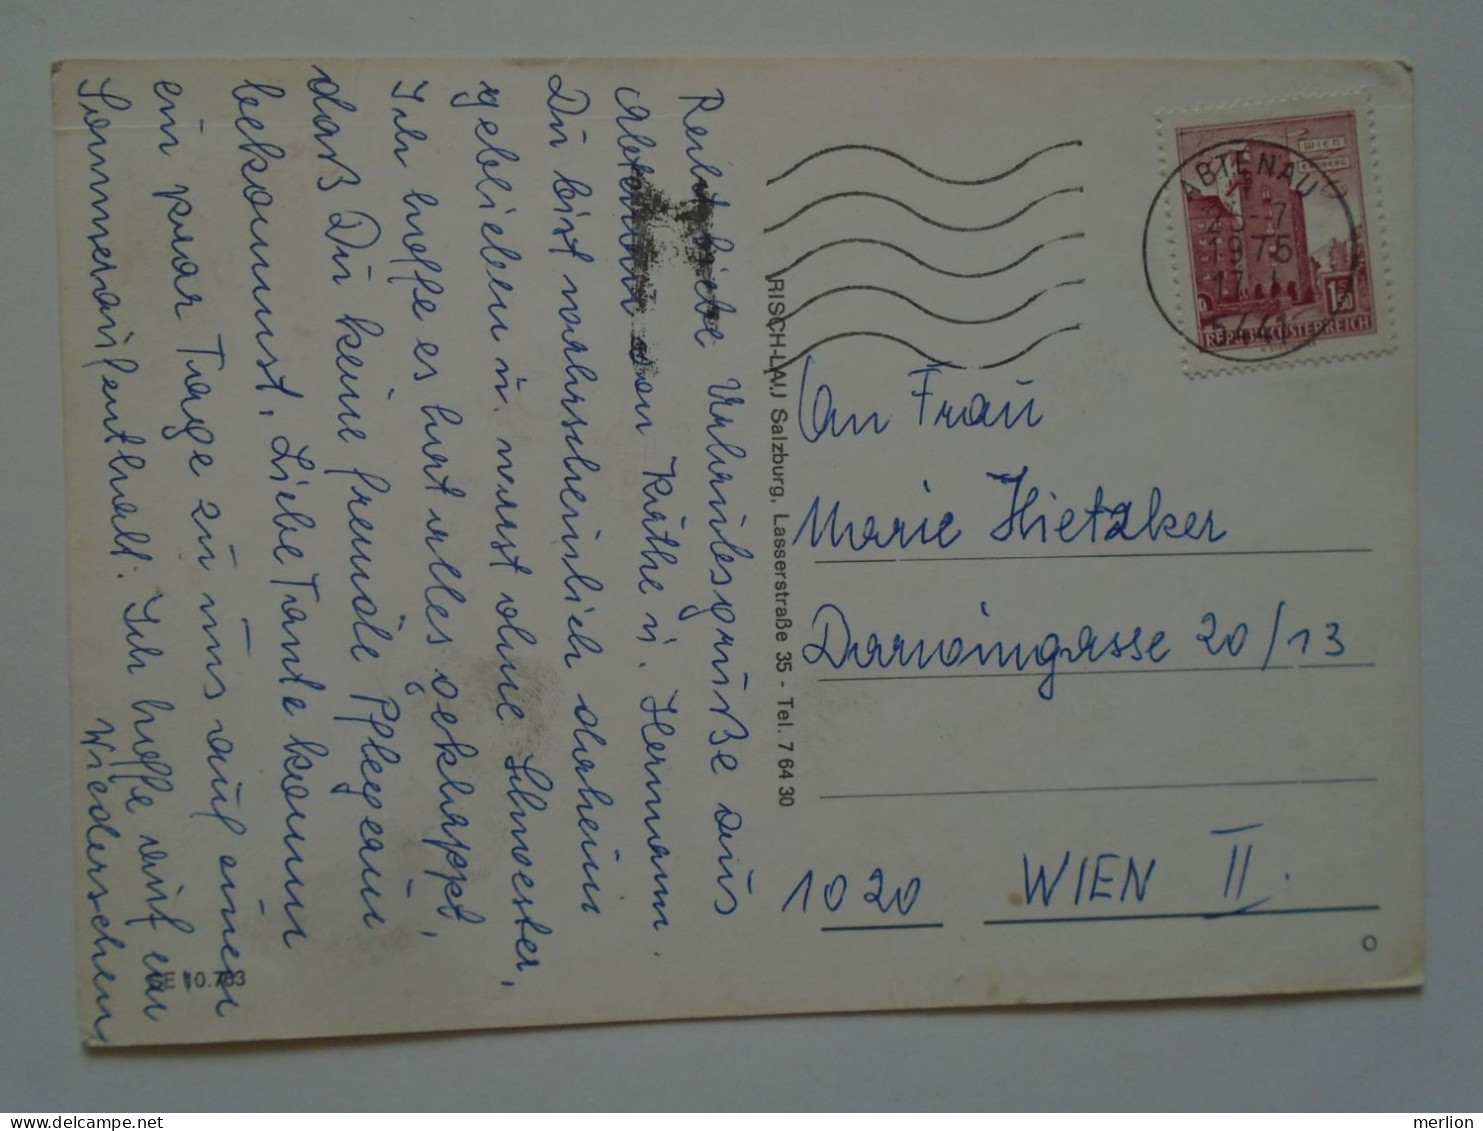 Recht liebe Urlaubsgrüße aus
Abtenau von Käthe u. Hermann.
Du bist wahrscheinlich daheim
geblieben u. warst ohne Schwester,
Ich hoffe es hat alles geklappt,
daß Du keine fremde Pflegain
bekommst. Liebe Tante komm
ein paar Tage zu uns auf einen
Sommeraufenthalt. Ich hoffe auf ein
Wiedersehen
SE 10.763
RISCH-LAU Salzburg, Lasserstraße 35 - Tel. 7 64 30
ABTENAU
1975
5441
WIEN
1.50
REPUBLIK ÖSTERREICH
An Frau
Marie Hietzker
Darwingasse 20/13
1020 WIEN II.
merlion